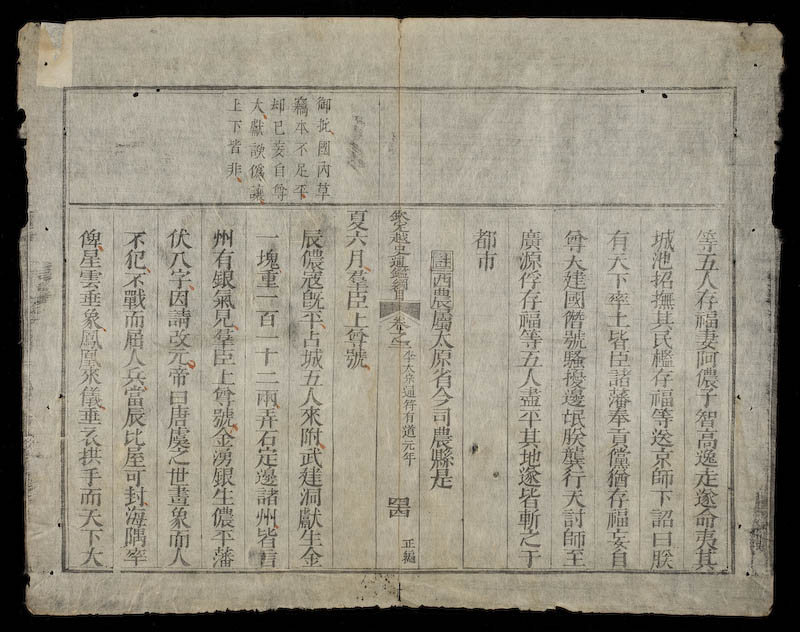 等五人存福妻阿儂子智高逸走遂命夷其
城池招撫其民檻存福等送京師下詔曰朕
有天下率土皆臣諸藩奉貢儻猶存福妄自
尊大建國僭號騷擾邊氓朕龔行天討師至
廣源俘存福等五人盡平其地遂皆斬之于
都市
註西農屬太原省今司農縣是
欽定越史通鑑綱目 卷之 李太宗通符有道元年 正編
御批國內草
竊本不足平
却已妄自尊
大獻諛僞讓
上下皆非
夏六月羣臣上尊號
辰儂寇旣平占城五人來附武建洞獻生金
一塊重一百一十二兩弄石定邊諸州皆言
州有銀氣見羣臣上尊號金湧銀生儂平藩
伏八字因請改元帝曰唐虞之世畫象而人
不犯不戰而屈人兵當辰比屋可封海隅率
俾星雲垂象鳳凰來儀垂衣拱手而天下大